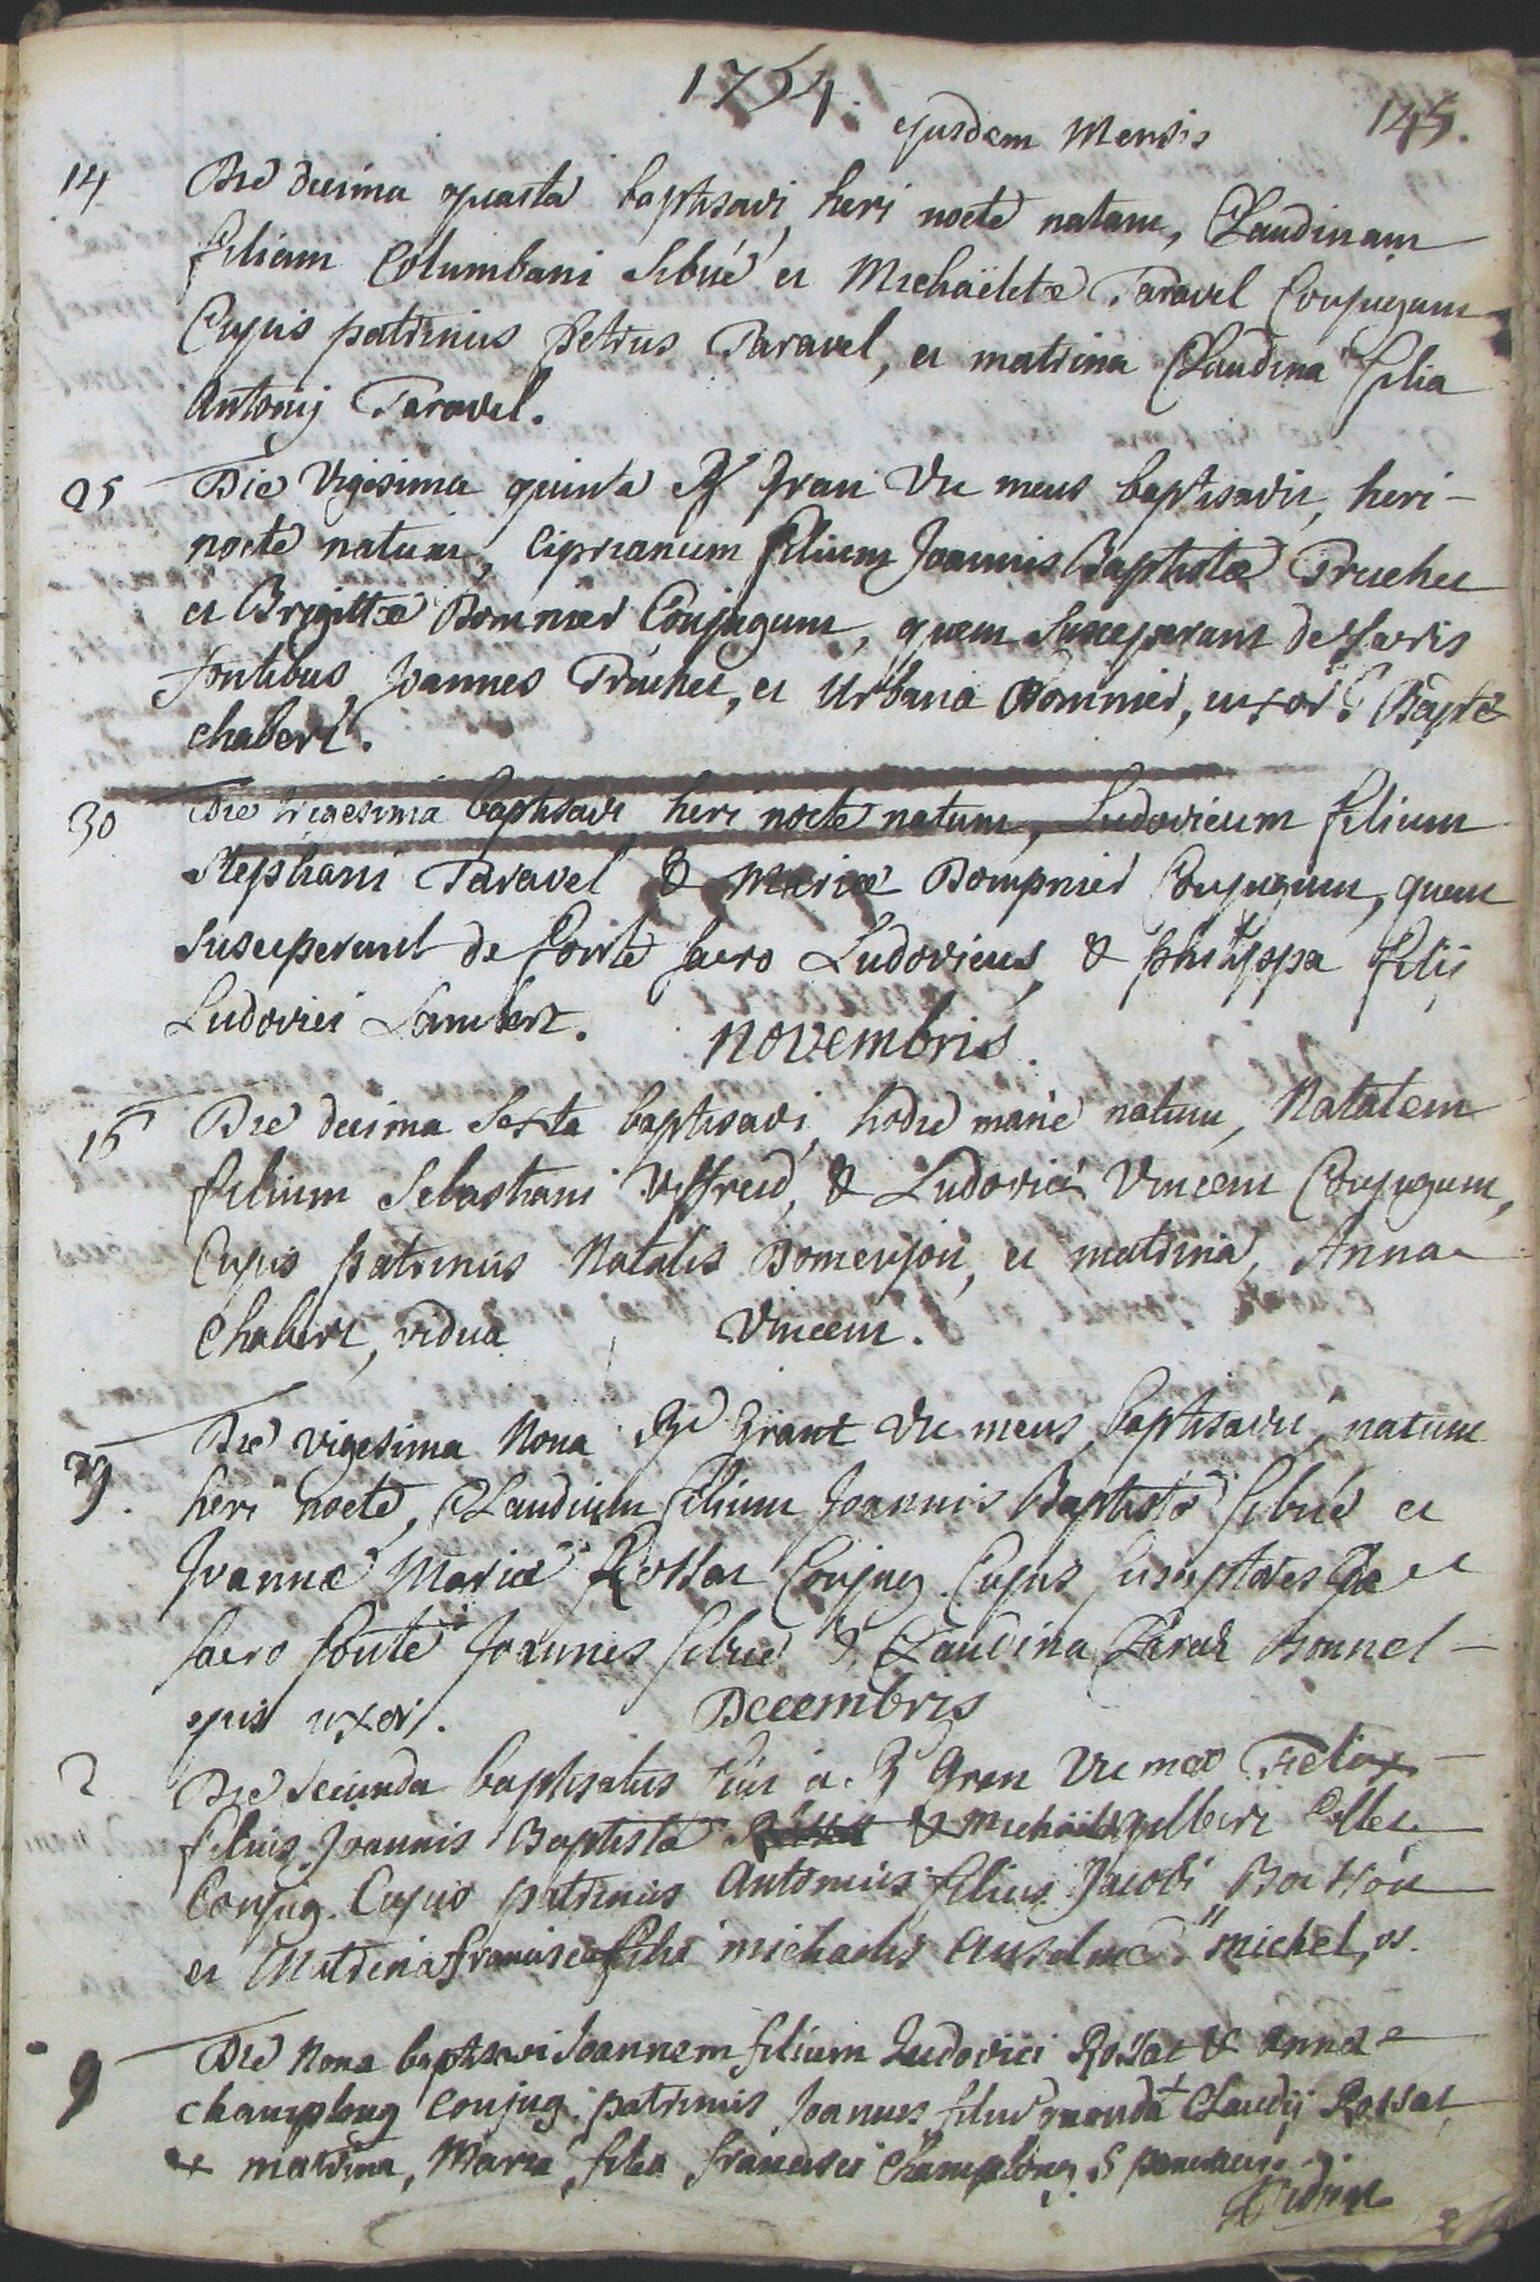 1754.
145.
ejusdem Mensis
14 Die decima quarta baptisavi, heri nocte natam, Claudinam
filiam Columbani Sibué et Michaëletæ Taravel Conjugum
Cujus patrinus Petrus Taravel, et matrina Claudina filia
Antonij Taravel.
25 Die Vigesima quinta Gran Vic meus baptisavit, heri
nocte natum, Ciprianum filium Joannis Baptistæ Truchet
et Brigittæ Bomnier Conjugum, quem Susceperunt de Sacris
fontibus Joannes Truchet, et Urbana Bomnier, uxor Bapte
chabert.
30 Die trigesima baptisavi heri nocte natum, Ludovicum filium
Stephani Taravel & Mariæ Bompnier Conjugum, quem
Susceperunt de fonte sacro Ludovicus & philippa filij
Ludovici Lambert.
Novembris.
16 Die decima Sexta baptisavi, hodie mane natum, Natalem
filium Sebastiani Viffred, & Ludovicæ Vincent Conjugum,
Cujus patrinus Natalis Domenjon, et matrina, Anna
Chabert, vidua Vincent.
29. Die vigesima Nona Grant Vic meus baptisavit, natum
heri nocte, Claudium filium Joannis Baptistæ Sibué et
Joannæ Mariæ Rossat Conjug. Cujus Susceptores de
sacro fonte Joannes Sibué & Claudina Claraz Bonnel
ejus uxor.
Decembris
2 Die Secunda baptisatus fuit a Gran Vic meo Felix
filius Joannis Baptistæ & gilbert Collet
Conjug. Cujus patrinus Antonius filius Jacobi
et Matrina francisca filia michaelis Anselme michel,
9 Die Nona baptisavi Joannem filium Ludovici Rossat & Annæ
champlong Conjug. patrinus Joannes filius Claudij Rossat
et matrina, Maria, filia francisci Champlong